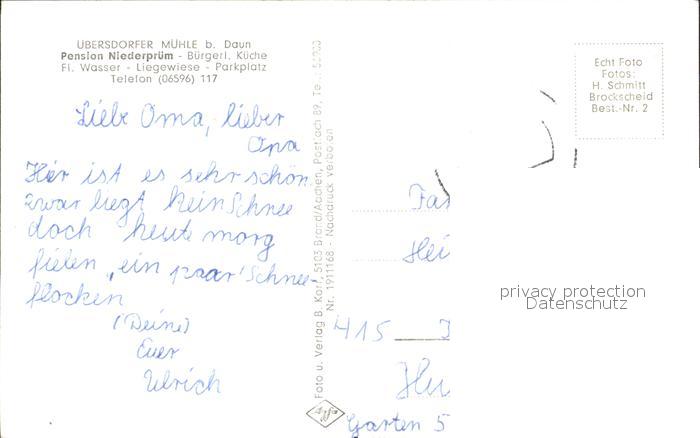 ÜBERSDORFER MÜHLE b. Daun
Pension Niederprüm - Bürgerl. Küche
Fl. Wasser - Liegewiese - Parkplatz
Telefon (06596) 117
Liebe Oma, lieber
Opa
Hier ist es sehr schön
zwar liegt kein Schnee
doch heute morg
fielen „ein paar" Schnee-
flocken
(Deine)
Euer
Ulrich
Foto u. Verlag B. Karf, 5103 Brand/Aachen, Postfach 89, Tel.
Nr. 1911168 - Nachdruck verboten
Echt Foto
Fotos:
H. Schmitt
Brockscheid
Best.-Nr. 2
Fa
Hei
415
Garten 5
privacy protection
Datenschutz